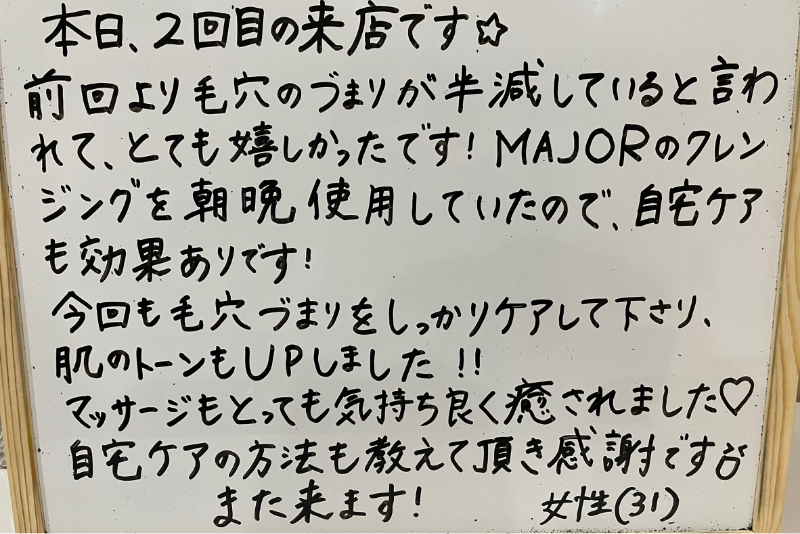 本日、2回目の来店です☆
前回より毛穴のづまりが半減していると言わ
れて、とても嬉しかったです!MAJORのクレン
ジングを朝晩使用していたので、自宅ケア
も効果ありです!
今回も毛穴づまりをしっかりケアして下さり、
肌のトーンもUPしました!!
マッサージもとっても気持ち良く癒されました♡
自宅ケアの方法も教えて頂き感謝です
また来ます! 女性(31)